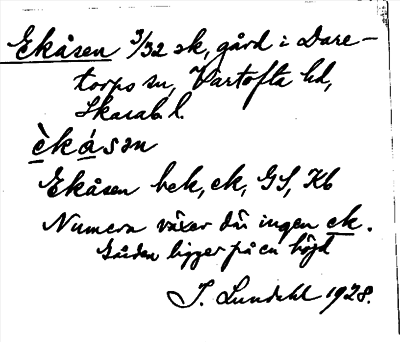 Ekåsen 3/32 sk, gård i Dare-
torps sn, Vartofta hd,
Skarab. l.
èkásən
Ekåsen bek, ek, GS, Kb
Numera växer där ingen ek.
Gården ligger på en höjd
J. Lundahl 1928.